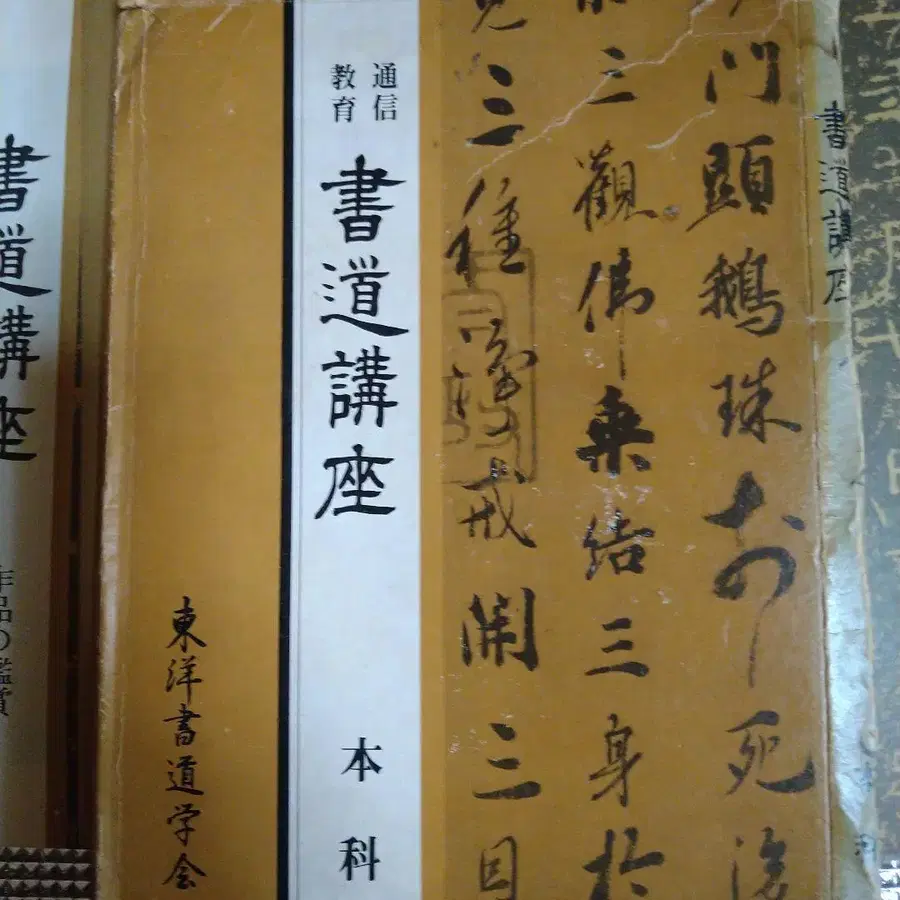 書道講座
門顯鵝珠
死後
三觀佛乘結三身於
三種
戒開三
通信
教育
書道講座
本科
東洋書道学会
書道講座
作品の鑑賞